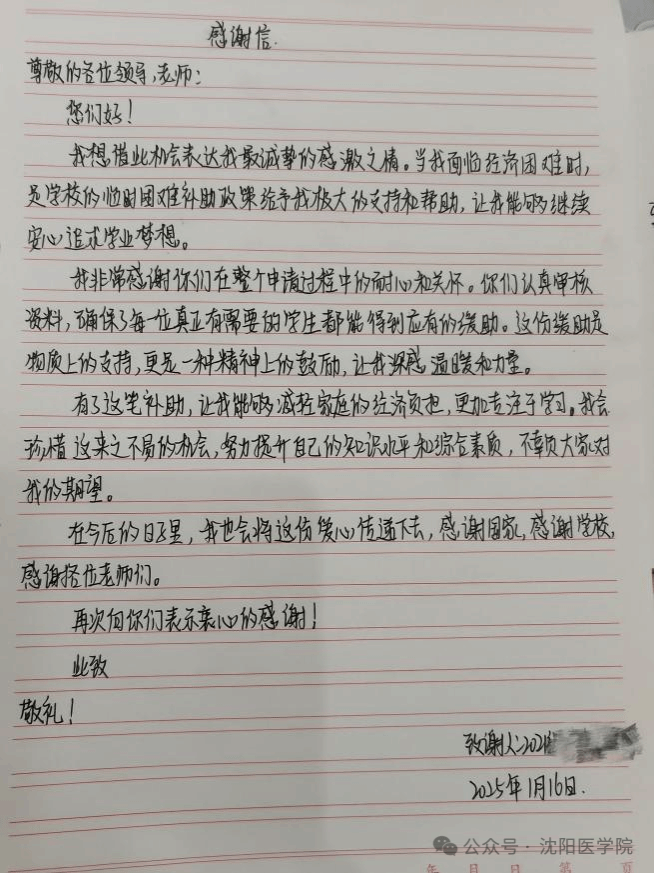 感谢信.
尊敬的各位领导,老师:
您们好!
我想借此机会表达我最诚挚的感激之情。当我面临经济困难时,
是学校的临时困难补助政策给予我极大的支持和帮助,让我能够继续
安心追求学业梦想。
我非常感谢你们在整个申请过程中的耐心和关怀。你们认真审核
资料,确保了每一位真正有需要的学生都能得到应有的援助。这份援助是
物质上的支持,更是一种精神上的鼓励,让我深感温暖和力量。
有了这笔补助,让我能够减轻家庭的经济负担,更加专注于学习。我会
珍惜这来之不易的机会,努力提升自己的知识水平和综合素质,不辜负大家对
我的期望。
在今后的日子里,我也会将这份爱心传递下去,感谢国家,感谢学校,
感谢各位老师们。
再次向你们表示衷心的感谢!
此致
敬礼!
致谢人:202
2025年1月16日.
公众号·沈阳医学院
年 月 日 第 页